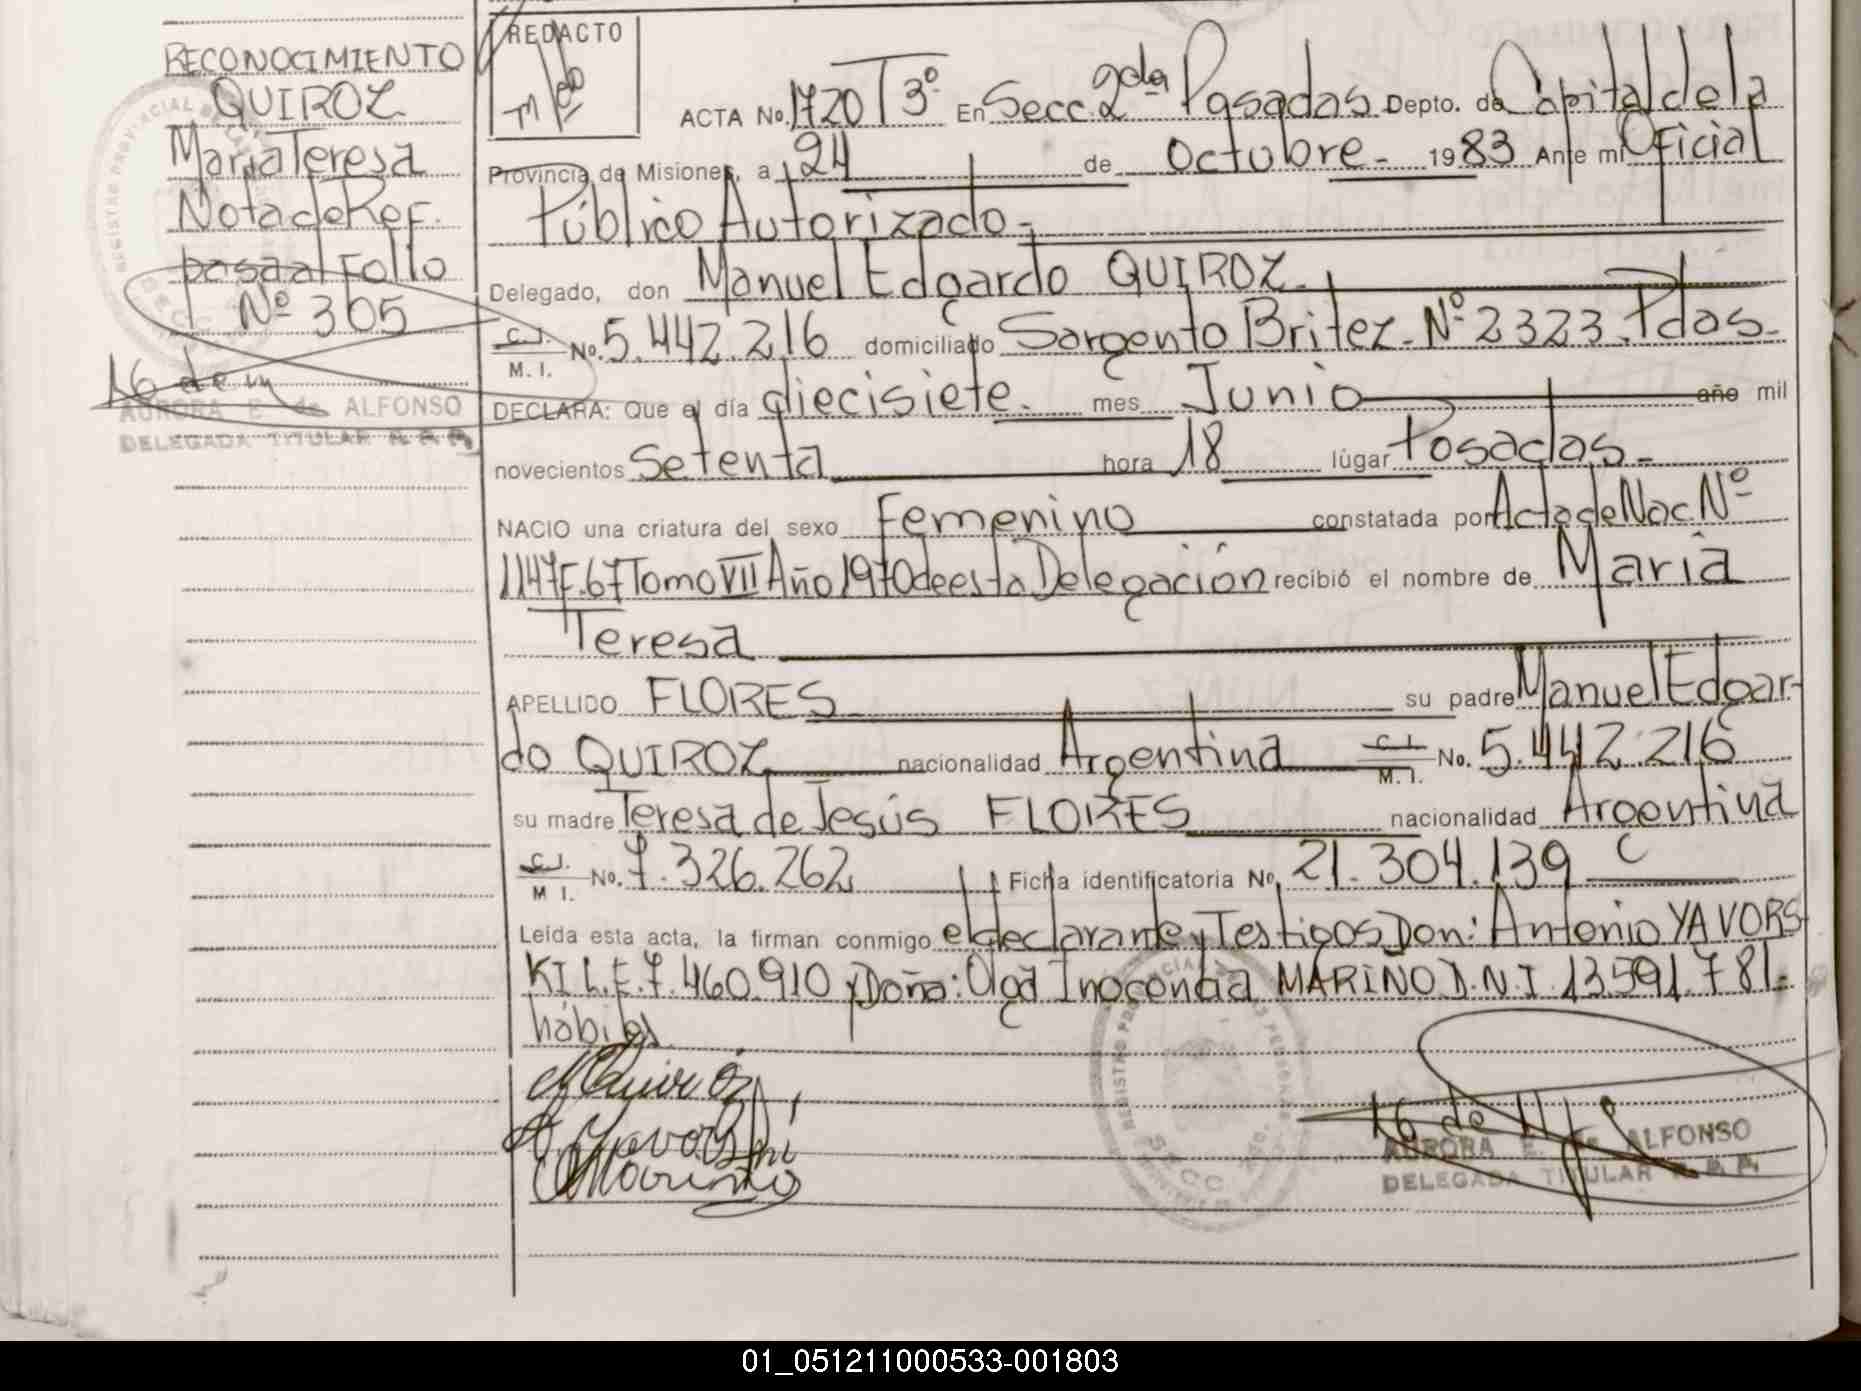 RECONOCIMIENTO
QUIROZ
Maria Teresa
Nota de Ref.
pasa al Folio
Nº 305
AURORA E. de ALFONSO
DELEGADA TITULAR
REDACTO
ACTA No. 1720 T 3º En Secc. 2da Posadas Depto. de Capital de la
Provincia de Misiones, a 24 de Octubre - 1983 Ante mi Oficial
Público Autorizado -
Delegado, don Manuel Edgardo QUIROZ
C.I. M. I. No. 5.442.216 domiciliado Sargento Britez - Nº 2323. Pdas -
DECLARA: Que el día diecisiete. mes Junio año mil
novecientos Setenta hora 18 lugar Posadas -
NACIO una criatura del sexo Femenino constatada por Acta de Nac. Nº
1147 F. 67 Tomo VII Año 1970 de esta Delegación recibió el nombre de María
Teresa
APELLIDO FLORES su padre Manuel Edgar-
do QUIROZ nacionalidad Argentina C.I. M. I. No. 5.442.216
su madre Teresa de Jesús FLORES nacionalidad Argentina
C.I. M I. No. 7.326.262 Ficha identificatoria No. 21.304.139 C
Leída esta acta, la firman conmigo el declarante y Testigos Don: Antonio YAVORS-
KI L.E. 7.460.910 y Doña: Olga Inocencia MARIÑO D.N.I. 13.591.781-
hábiles
MQuiroz
A. Yavorski
OMarinño
REGISTRO PROVINCIAL DE LAS PERSONAS
SECC. 2da.
AURORA E. de ALFONSO
DELEGADA TITULAR
01_051211000533-001803